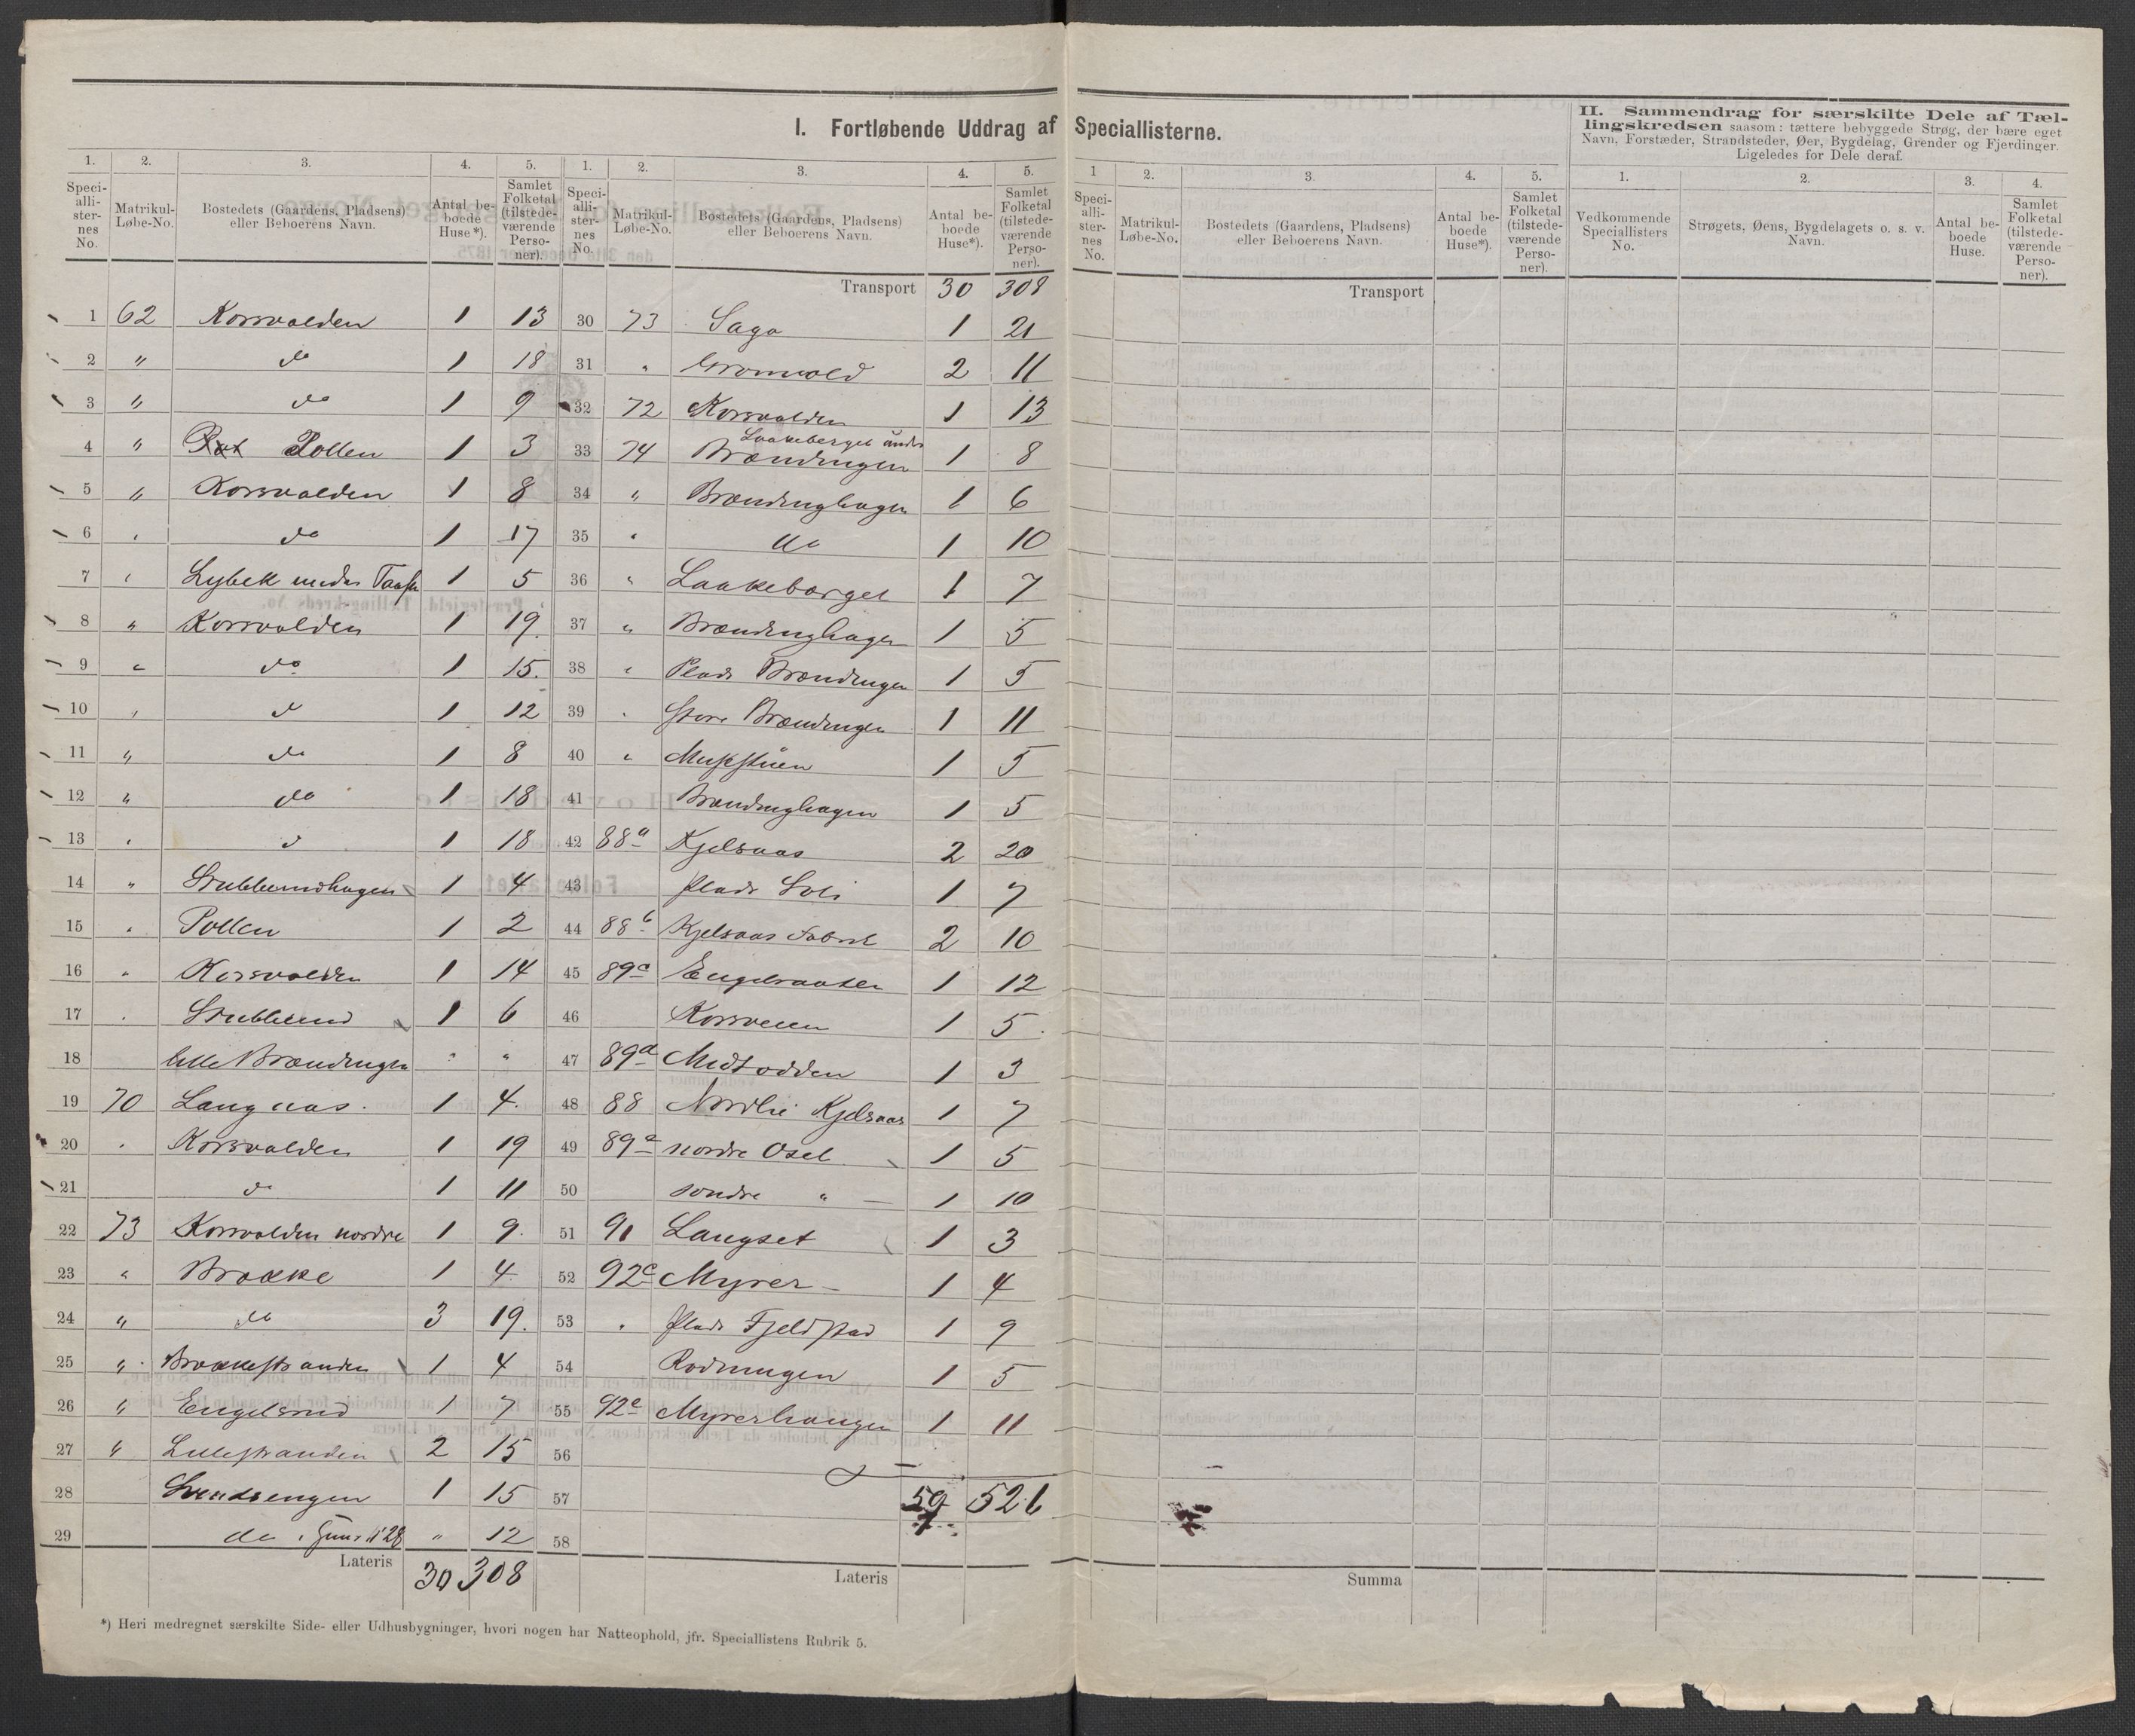 I. Fortløbende Uddrag af Speciallisterne.
II. Sammendrag for særskilte Dele af Tæl-
lingskredsen saasom: tættere bebyggede Strøg, der bære eget
Navn, Forstæder, Strandsteder, Øer, Bygdelag, Grender og Fjerdinger.
Ligeledes for Dele deraf.
1. 2. 3. 4. 5. 1. 2. 3. 4. 5. 1 2. 3. 4. 5. 1. 2. 3. 4.
Speci-alli-ster-nes No. Matrikul-Løbe-No. Bostedets (Gaardens, Pladsens) eller Beboerens Navn. Antal be-boede Huse*). Samlet Folketal (tilstede-værende Perso-ner).
Speci-alli-ster-nes No. Matrikul-Løbe-No. Bostedets (Gaardens, Pladsens) eller Beboerens Navn. Antal be-boede Huse*). Samlet Folketal (tilstede-værende Perso-ner).
Speci-alli-ster-nes No. Matrikul-Løbe-No. Bostedets (Gaardens, Pladsens) eller Beboerens Navn. Antal be-boede Huse*). Samlet Folketal (tilstede-værende Perso-ner).
Vedkommende Speciallisters No. Strøgets, Øens, Bygdelagets o. s. v. Navn. Antal be-boede Huse. Samlet Folketal (tilstede-værende Perso-ner).
1 62 Korsvolden 1 13
2 " do 1 18
3 " do 1 9
4 " Pollen 1 3
5 " Korsvolden 1 8
6 " do 1 17
7 " Lybek under 1 5
8 " Korsvolden 1 19
9 " do 1 15.
10 " d 1 12
11 " do 1 8
12 " do 1 18
13 " d 1 18
14 " Stubberudhagen 1 4
15 " Pollen 1 2
16 " Korsvolden 1 14
17 " Stubberud 1 6
18 lille Brændingen " "
19 70 Langnas. 1 4.
20 " Korsvolden 1 19
21 do 1 11
22 73 Korsvolden nordre 1 9.
23 " Brække 1 4
24 " do 3 19.
25 " Brækkestranden 1 4
26 " Engelsrud 1 7
27 " Lillestranden 2 15
28 Svendsengen 1 15
29 do " 12
Lateris 30 308
Transport 30 308
30 73 Saga 1 21
31 " Grønvold 2 11
32 72 Korsvolden 1 13
33 74 Laakeberget under Brændingen 1 8
34 " Brændinghagen 1 6
35 " do 1 10
36 " Laakeberget 1 7
37 " Brændinghagen 1 5
38 " Plads Brændingen 1 5
39 " store Brændingen 1 11
40 " 1 5
41 Brændinghagen 1 5
42 88a Kjelsaas 2 20
43 plads Soli 1 7
44 88b Kjelsaas Fabrik 2 10
45 89a Engelsaasen 1 12
46 Korsveien 1 5
47 89a Midtodden 1 3
48 88 Nordli Kjelsaas 1 7
49 89a nordre Oset 1 5
50 søndre " 1 10
51 91 Langset 1 3
52 92c Myrer 1 4
53 " plads Fjeldstad 1 9
54 Rodningen 1 5
55 92e Myrerhaugen 1 11
56
57 59 526
58
Lateris
Transport
Summa
*) Heri medregnet særskilte Side- eller Udhusbygninger, hvori nogen har Natteophold, jfr. Speciallistens Rubrik 5.